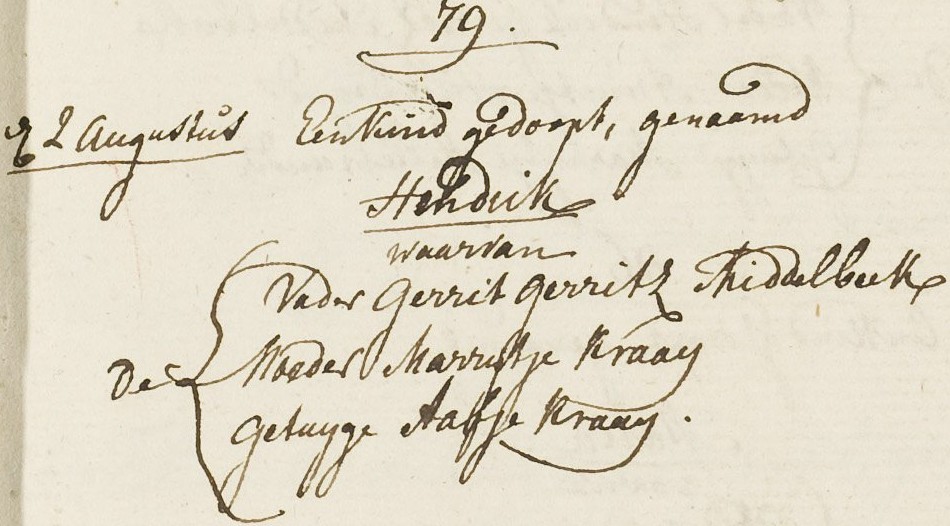 79.
2 Augustus Een Kind gedoopt, genaamd
Hendrik
waarvan
Vader Gerrit Gerritz Middelbeek
De Moeder Marritje Kraaij
Getuyge Aafje Kraaij.